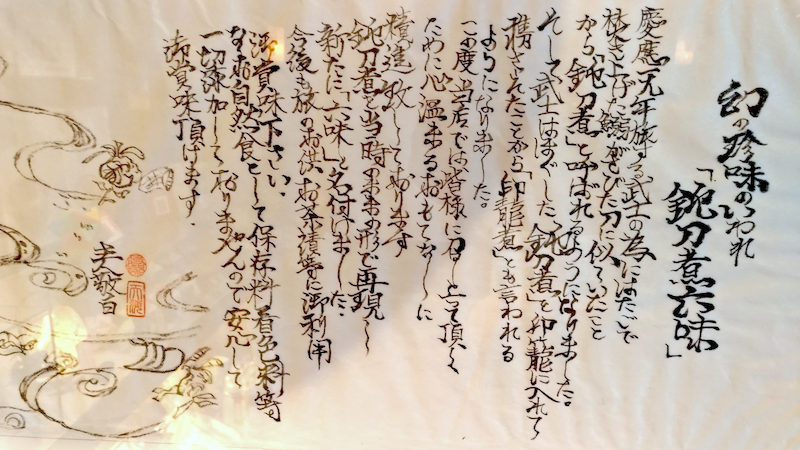 幻の珍味のいわれ
「鈍刀煮六味」
慶應元年旅する武士の為にはたごで
焚き上げた がさびた刀に似ていたこと
から「鈍刀煮」と呼ばれるようになりました。
そして武士はほぐした「鈍刀煮」を印籠に入れて
携さえたことから「印籠煮」とも言われる
ようになりました。
この度当店では皆様に召し上って頂く
ために心温まるおもてなしに
精進致しております
鈍刀煮を当時のままの形で再現し
新たに「六味」と名付けました。
今後も旅のお供、お茶漬等に御利用
御賞味下さい。
なお自然食として保存料着色料等
一切添加しておりませんので安心して
御賞味頂けます。
主敬白